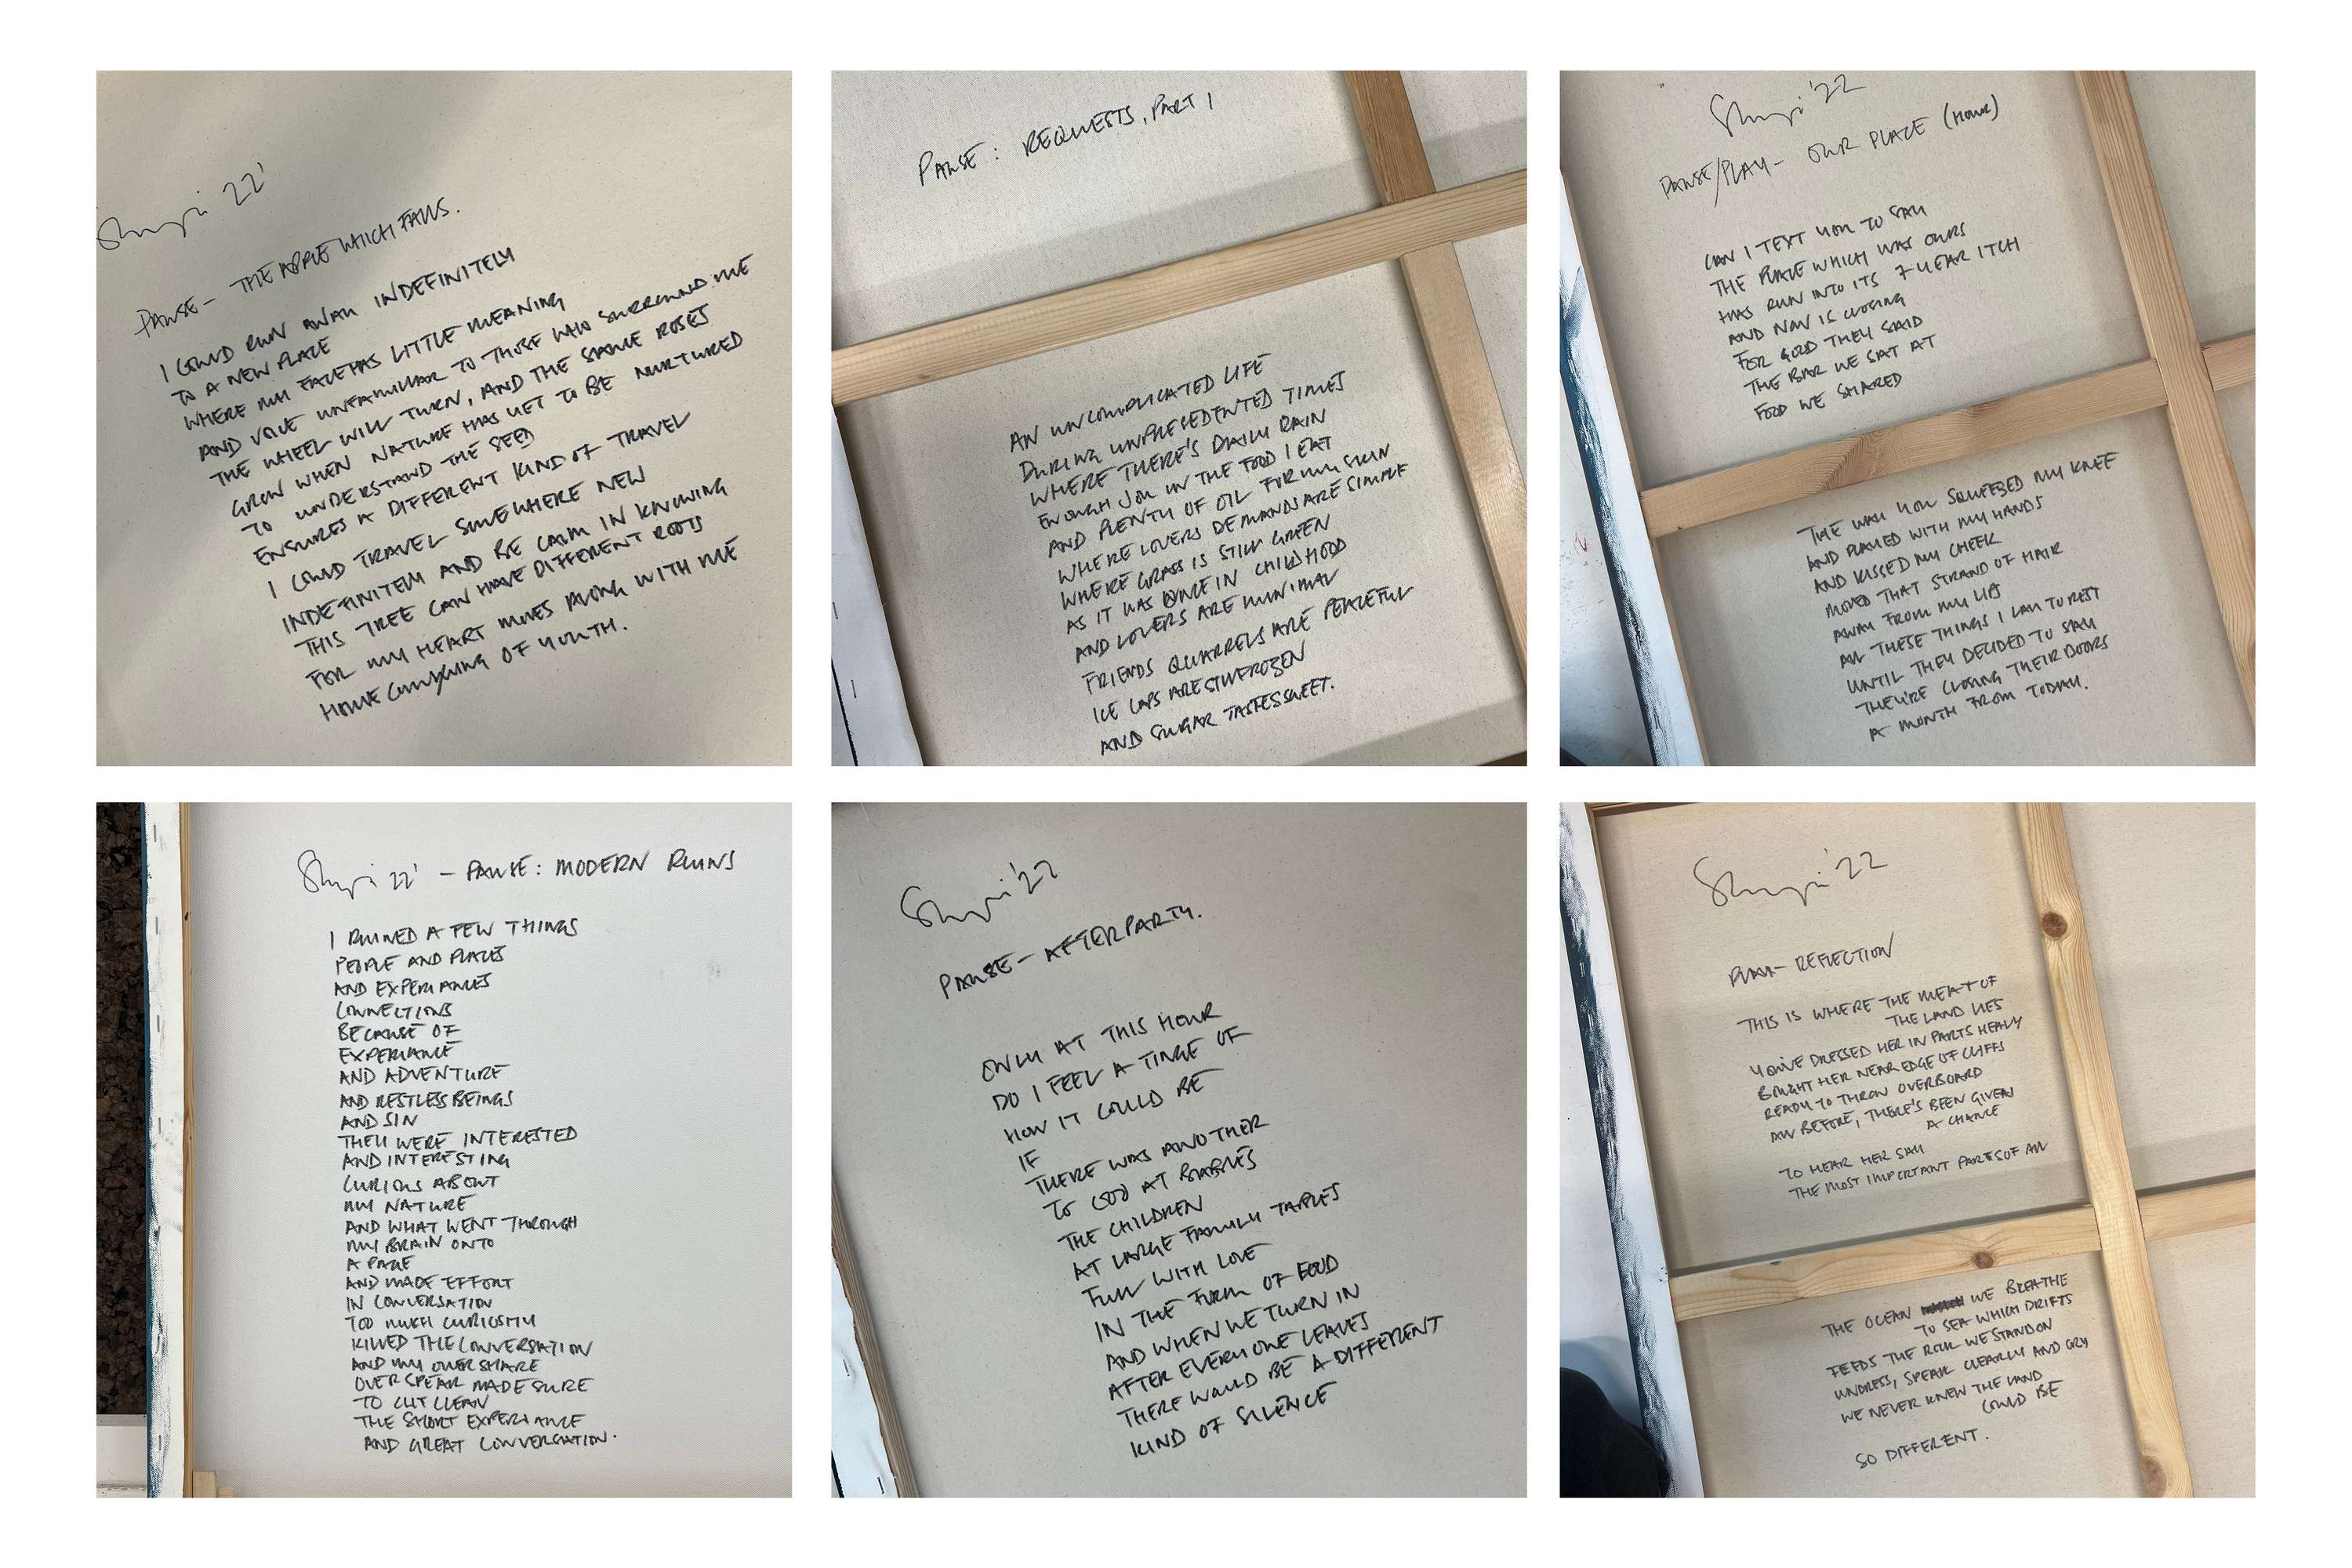 22'
PAUSE - THE APPLE WHICH FALLS.
I COULD RUN AWAY INDEFINITELY
TO A NEW PLACE
WHERE MY FACE HAS LITTLE MEANING
AND VOICE UNFAMILIAR TO THOSE WHO SURROUND ME
THE WHEEL WILL TURN, AND THE SAME ROSES
GROW WHEN NATURE HAS YET TO BE NURTURED
TO UNDERSTAND THE SEED
ENSURES A DIFFERENT KIND OF TRAVEL
I COULD TRAVEL SOMEWHERE NEW
INDEFINITELY AND BE CALM IN KNOWING
THIS TREE CAN HAVE DIFFERENT ROOTS
FOR MY HEART MOVES ALONG WITH ME
HOME OF YOUTH.
PAUSE: REQUESTS, PART 1
AN UNCOMPLICATED LIFE
DURING UNPRECEDENTED TIMES
WHERE THERE'S DAILY RAIN
ENOUGH JOY IN THE FOOD I EAT
AND PLENTY OF OIL FOR MY SKIN
WHERE LOVERS DEMANDS ARE SIMPLE
WHERE GRASS IS STILL GREEN
AS IT WAS ONCE IN CHILDHOOD
AND LOVERS ARE MINIMAL
FRIENDS QUARRELS ARE PEACEFUL
ICE CAPS ARE STILL FROZEN
AND SUGAR TASTES SWEET.
'22
PAUSE/PLAY - OUR PLACE (HOUR)
CAN I TEXT YOU TO SAY
THE PLACE WHICH WAS OURS
HAS RUN INTO ITS 7 YEAR ITCH
AND NOW IS CLOSING
FOR GOOD THEY SAID
THE BAR WE SAT AT
FOOD WE SHARED
THE WAY YOU SQUEEZED MY KNEE
AND PLAYED WITH MY HANDS
AND KISSED MY CHEEK
MOVED THAT STRAND OF HAIR
AWAY FROM MY LIPS
ALL THESE THINGS I LAY TO REST
UNTIL THEY DECIDED TO SAY
THEY'RE CLOSING THEIR DOORS
A MONTH FROM TODAY.
22' - PAUSE: MODERN RUINS
I RUINED A FEW THINGS
PEOPLE AND PLACES
AND EXPERIANCES
CONNECTIONS
BECAUSE OF
EXPERIANCE
AND ADVENTURE
AND RESTLESS BEINGS
AND SIN
THEY WERE INTERESTED
AND INTERESTING
CURIOUS ABOUT
MY NATURE
AND WHAT WENT THROUGH
MY BRAIN ONTO
A PAGE
AND MADE EFFORT
IN CONVERSATION
TOO MUCH CURIOSITY
KILLED THE CONVERSATION
AND MY OVERSHARE
OVER SPEAK MADE SURE
TO CUT CLEAN
THE SHORT EXPERIANCE
AND GREAT CONVERSATION.
'22
PAUSE - AFTERPARTY.
ONLY AT THIS HOUR
DO I FEEL A TINGE OF
HOW IT COULD BE
IF
THERE WAS ANOTHER
TO COO AT BABIES
THE CHILDREN
AT LARGE FAMILY TABLES
FULL WITH LOVE
IN THE FORM OF FOOD
AND WHEN WE TURN IN
AFTER EVERYONE LEAVES
THERE WOULD BE A DIFFERENT
KIND OF SILENCE
'22
PLAY - REFLECTION
THIS IS WHERE THE MEAT OF
THE LAND LIES
YOU'VE DRESSED HER IN PARTS HEAVY
BOUGHT HER NEAR EDGE OF CLIFFS
READY TO THROW OVERBOARD
ALL BEFORE, THERE'S BEEN GIVEN
A CHANCE
TO HEAR HER SAY
THE MOST IMPORTANT PARTS OF ALL
THE OCEAN WE BREATHE
TO SEA WHICH DRIFTS
FEEDS THE ROCK WE STAND ON
UNDRESS, SPEAK CLEARLY AND CRY
WE NEVER KNEW THE LAND
COULD BE
SO DIFFERENT.